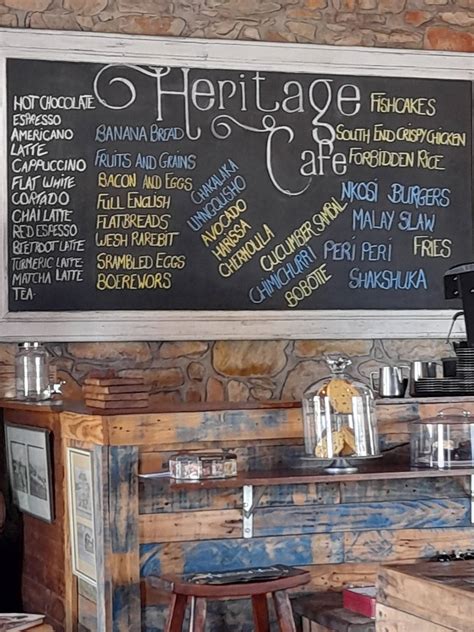 Heritage
Cafe
HOT CHOCOLATE
ESPRESSO
AMERICANO
LATTE
CAPPUCCINO
FLAT WHITE
CORTADO
CHAI LATTE
RED ESPRESSO
BEETROOT LATTE
TURMERIC LATTE
MATCHA LATTE
TEA
BANANA BREAD
FRUITS AND GRAINS
BACON AND EGGS
FULL ENGLISH
FLATBREADS
WESH RAREBIT
SRAMBLED EGGS
BOEREWORS
CHAKALAKA
UMNGQUSHO
AVOCADO
HARISSA
CHERMOULA
CUCUMBER SAMBAL
CHIMICHURRI
BOBOTIE
FISHCAKES
SOUTH END CRISPY CHICKEN
FORBIDDEN RICE
NKOSI BURGERS
MALAY SLAW
PERI PERI
FRIES
SHAKSHUKA